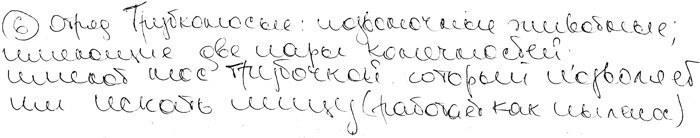 ⑥ Отряд Трубконосые: позвоночные животные;
имеющие две пары конечностей.
имеют нос трубочкой который позволяет
им искать пищу (работает как пылесос)